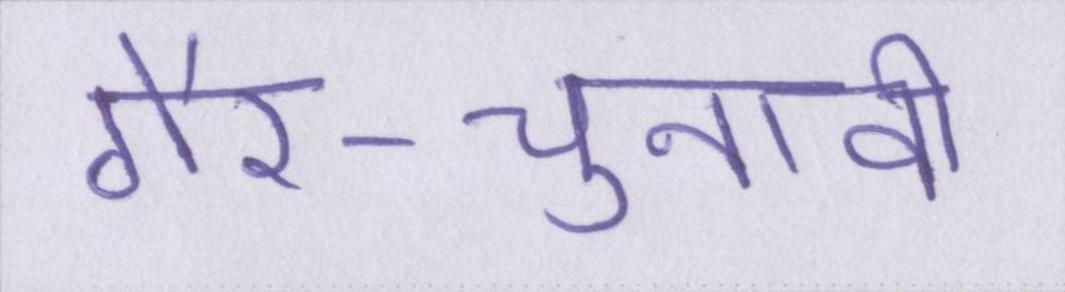 गैर-चुनावी